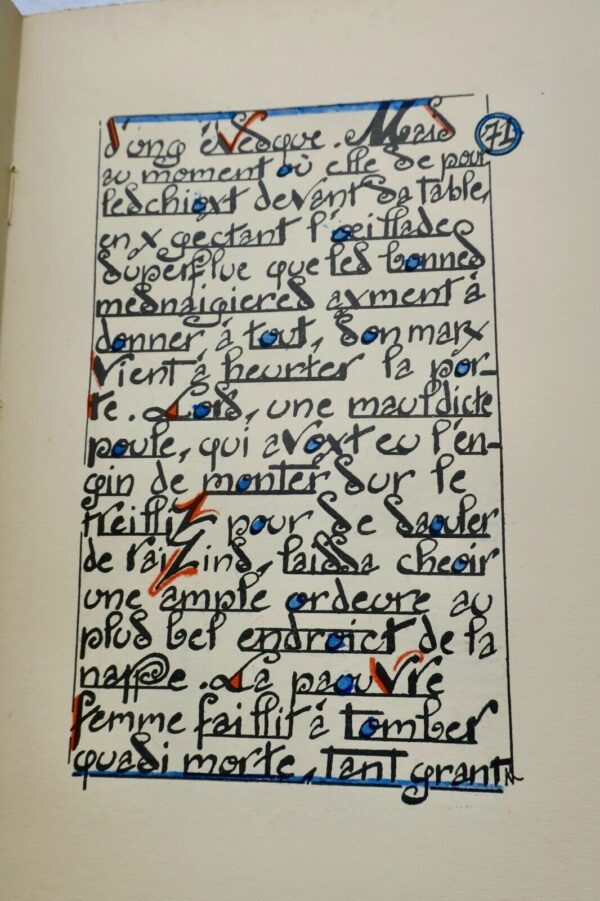 d'ung évesque. Mais
71
au moment où elle se pour
leschioyt devant sa table,
en y gectant l'œillade
superflue que les bonnes
mesnaigieres ayment à
donner à tout, son mary
vient à heurter la por-
te. Lors, une mauldicte
poule, qui avoyt eu l'en-
gin de monter sur le
treilliz pour se saouler
de raizins, laissa cheoir
une ample ordeure au
plus bel endroict de la
nappe. La paouvre
femme faillit à tomber
quasi morte, tant grant